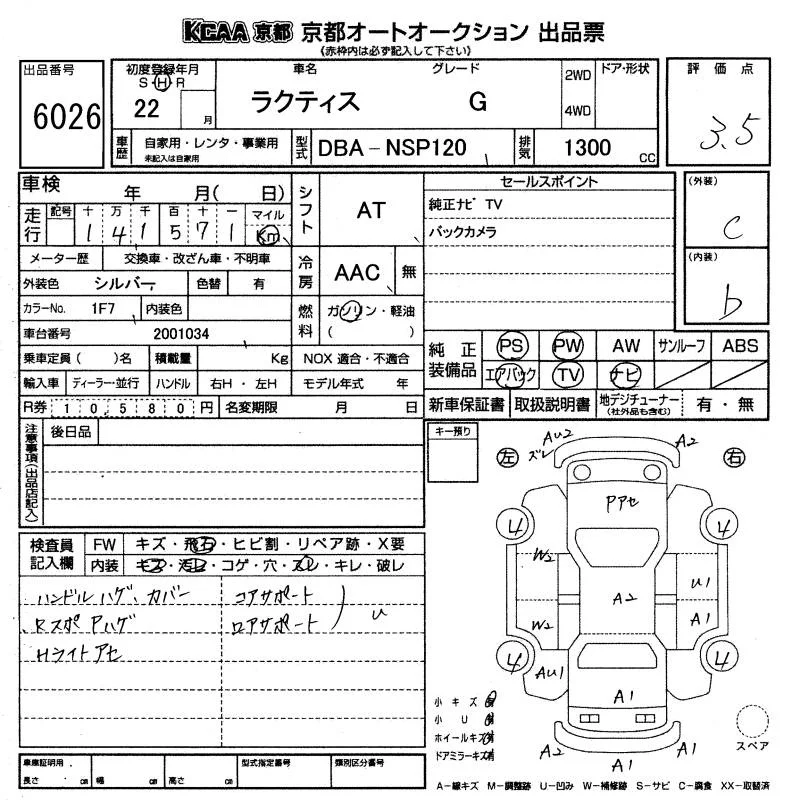 KCAA 京都 京都オートオークション 出品票
(赤枠内は必ず記入して下さい)
出品番号
6026
初度登録年月
S・H・R
22 月
車名
ラクティス
グレード
G
2WD
4WD
ドア・形状
評価点
3.5
車歴
自家用・レンタ・事業用
未記入は自家用
型式
DBA-NSP120
排気
1300 CC
車検 年 月( 日)
走行
記号 十 万 千 百 十 一 マイル
1 4 1 5 7 1 Km
メーター歴 交換車・改ざん車・不明車
外装色 シルバー 色替 有
カラーNo. 1F7 内装色
車台番号 2001034
乗車定員( )名 積載量 Kg
輸入車 ディーラー・並行 ハンドル 右H・左H
R券 10,580円 名変期限 月 日
シフト
AT
冷房
AAC 無
燃料
ガソリン・軽油
( )
NOX 適合・不適合
モデル年式 年
セールスポイント
純正ナビ TV
バックカメラ
(外装)
C
(内装)
b
純正装備品
PS PW AW サンルーフ ABS
エアバック TV ナビ
新車保証書 取扱説明書 地デジチューナー
(社外品も含む)
有・無
注意事項(出品店記入)
後日品
キー預り
検査員記入欄
FW キズ・飛石・ヒビ割・リペア跡・X要
内装 キズ・汚レ・コゲ・穴・スレ・キレ・破レ
ハンドルハゲ、カバー
RスポPハゲ
Hライトアセ
コアサポート
ロアサポート
U
左
右
AU2
ズレ
A2
Pアセ
4
4
W2
U1
A2
W2
A1
4
4
AU1
A1
A2
A1
A1
小キズ
小U
ホイールキズ
ドアミラーキズ
スペア
A-線キズ M-調整跡 U-凹み W-補修跡 S-サビ C-腐食 XX-取替済
車庫証明用
長さ cm 幅 cm 高さ cm
型式指定番号
類別区分番号